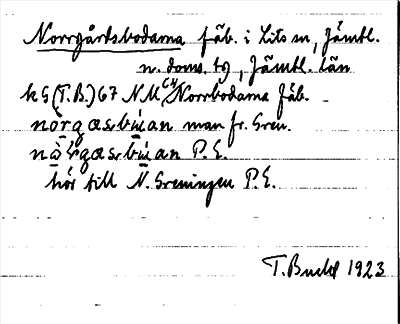 Norrgårdsbodarna fäb. i Lits sn, Jämtl.
n. doms. tg, Jämtl. län
k G (T.B.) 67 N.M. Norrbodarna fäb.
man fr. Gren.
P.E.
hör till N. Greningen P.E.
T. Bucht 1923